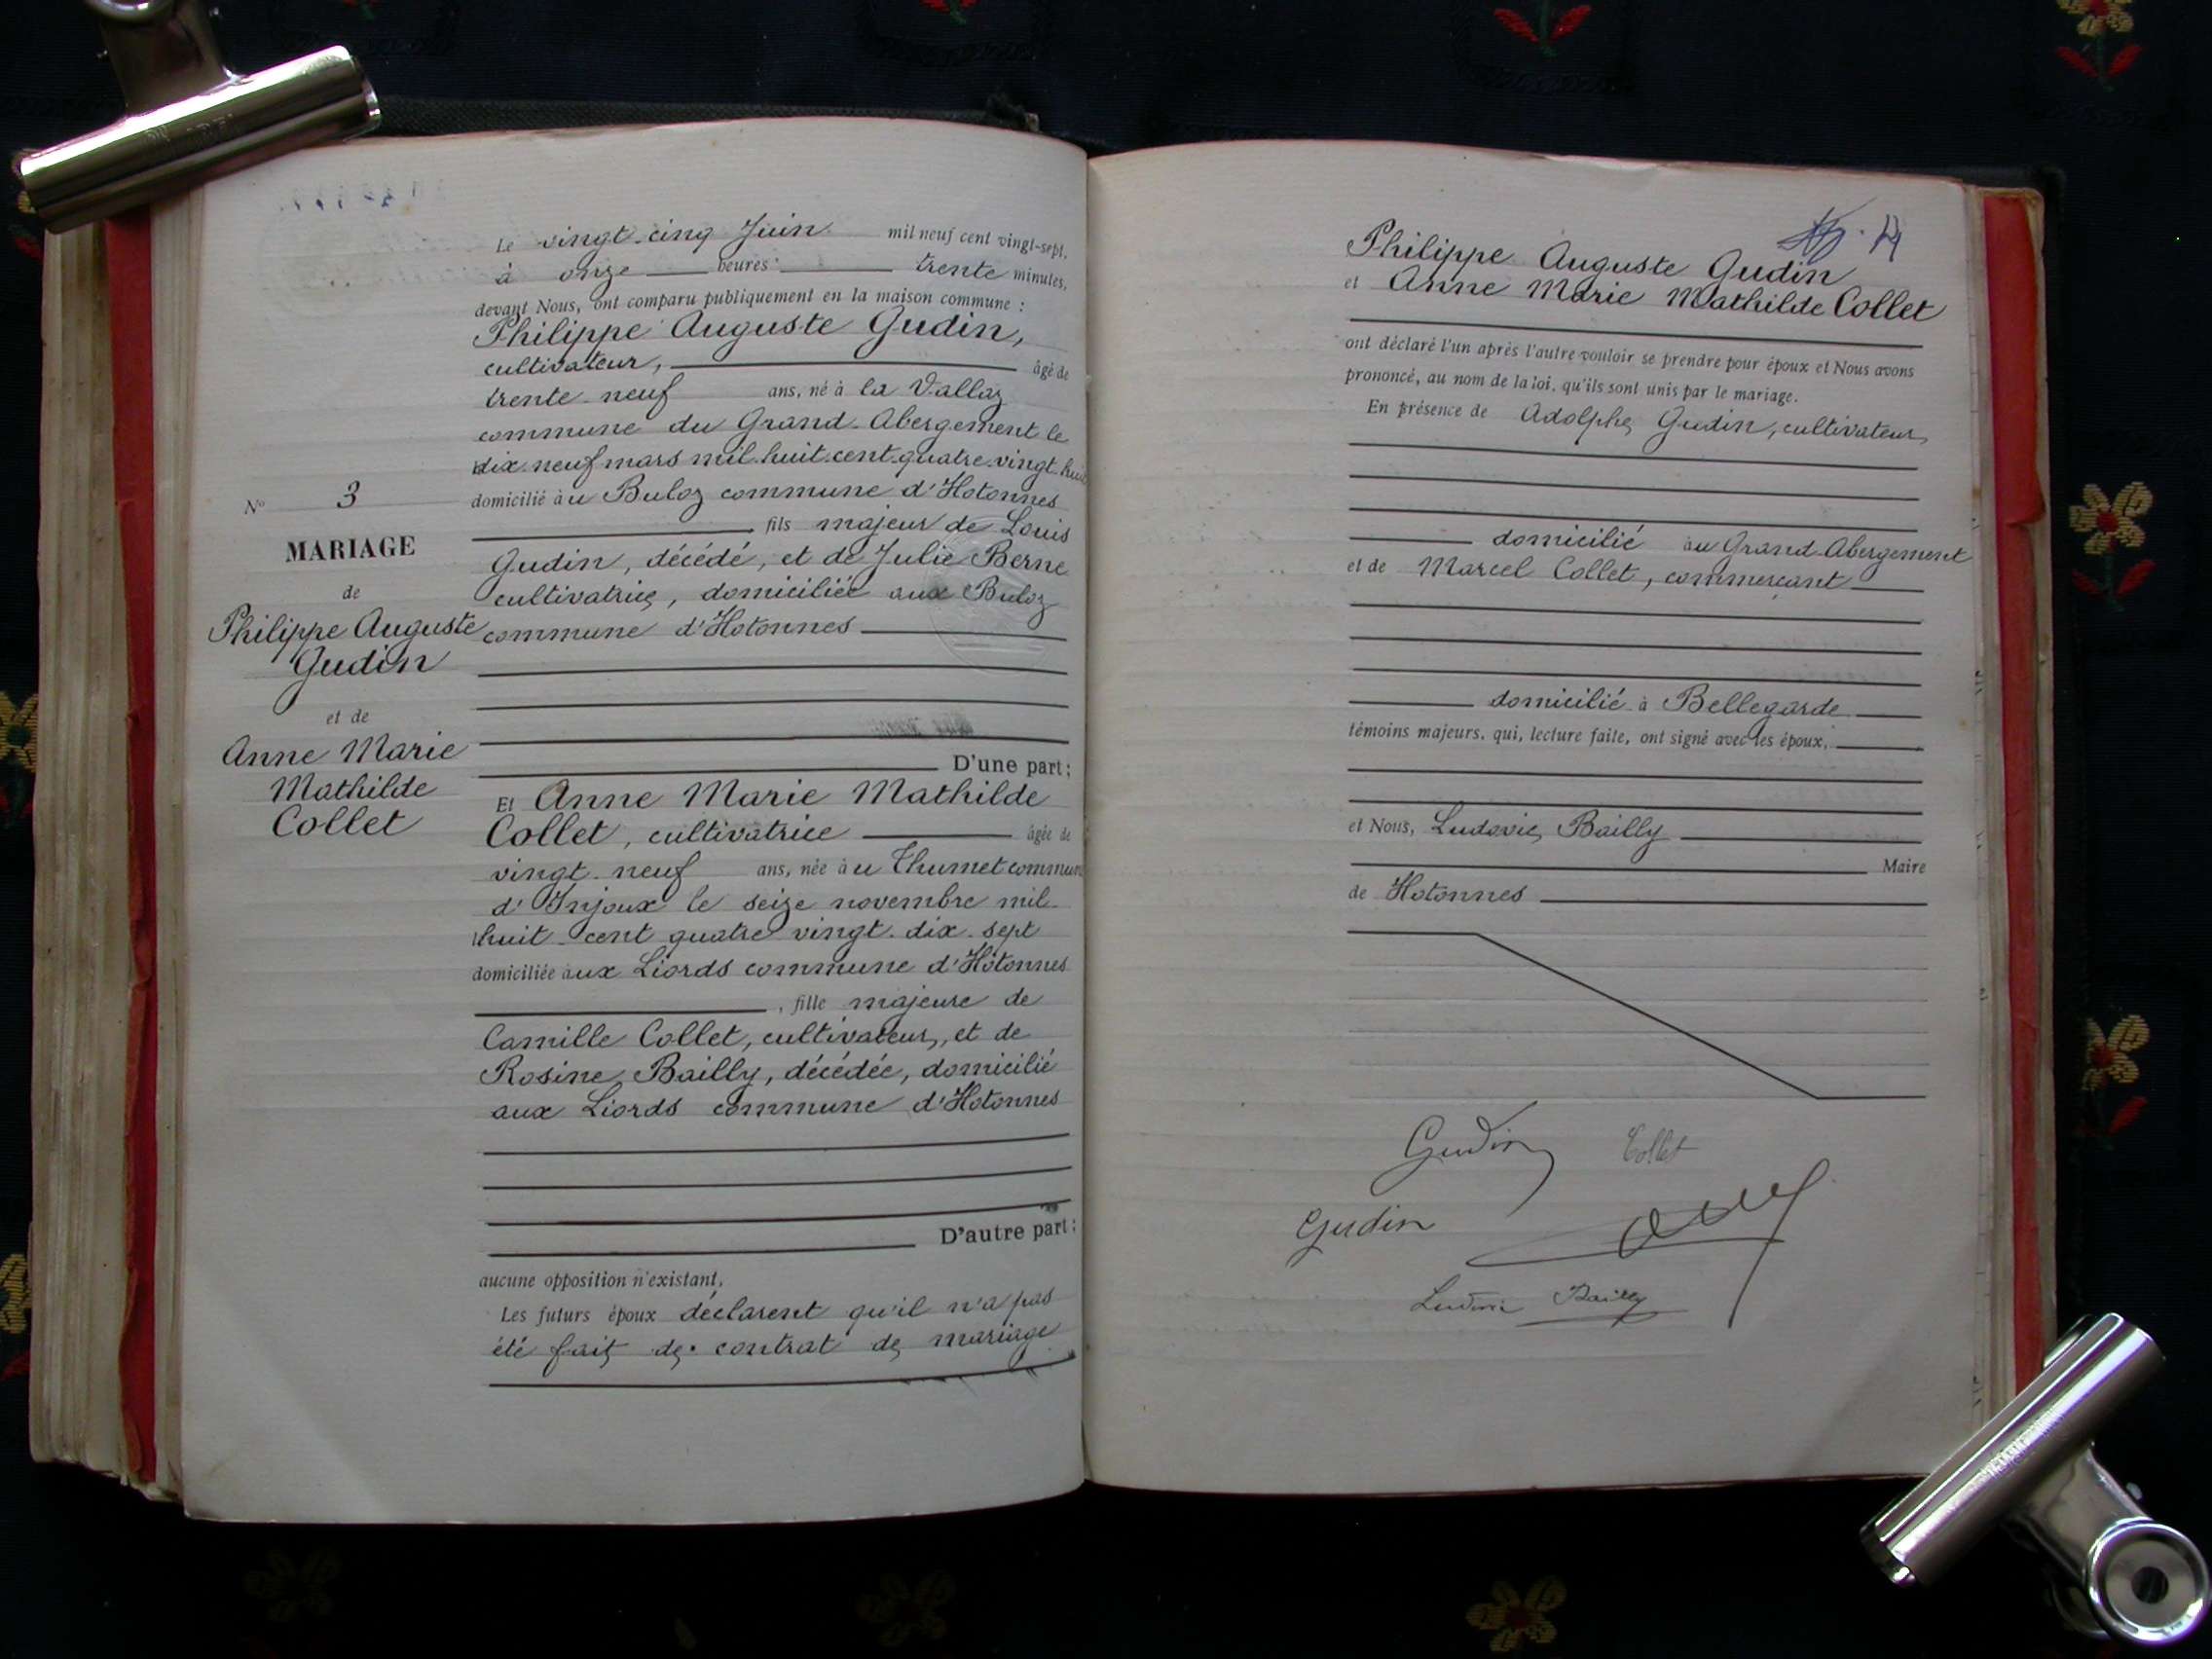 Le vingt-cinq Juin mil neuf cent vingt-sept,
à onze heures trente minutes,
devant Nous, ont comparu publiquement en la maison commune :
Philippe Auguste Gudin,
cultivateur, âgé de
trente-neuf ans, né à la Vallaz
commune du Grand-Abergement le
dix-neuf mars mil-huit-cent-quatre-vingt-huit
domicilié au Buloz commune d'Hotonnes
fils majeur de Louis
Gudin, décédé, et de Julie Berne
cultivatrice, domiciliée aux Buloz
commune d'Hotonnes
D'une part ;
Et Anne Marie Mathilde
Collet, cultivatrice âgée de
vingt-neuf ans, née àu Thumet commune
d'Injoux le seize novembre mil-
huit-cent quatre vingt-dix-sept
domiciliée àux Liords commune d'Hotonnes
, fille majeure de
Camille Collet, cultivateur, et de
Rosine Bailly, décédée, domicilié
aux Liords commune d'Hotonnes
D'autre part ;
aucune opposition n'existant,
Les futurs époux déclarent qu'il n'a pas
été fait de contrat de mariage
N° 3
MARIAGE
de
Philippe Auguste
Gudin
et de
Anne Marie
Mathilde
Collet
Philippe Auguste Gudin
et Anne Marie Mathilde Collet
ont déclaré l'un après l'autre vouloir se prendre pour époux et Nous avons
prononcé, au nom de la loi, qu'ils sont unis par le mariage.
En présence de Adolphe Gudin, cultivateur
domicilié au Grand-Abergement
et de Marcel Collet, commerçant
domicilié à Bellegarde
témoins majeurs, qui, lecture faite, ont signé avec les époux,
et Nous, Ludovic Bailly
Maire
de Hotonnes
Gudin Collet
Gudin
Ludovic Bailly